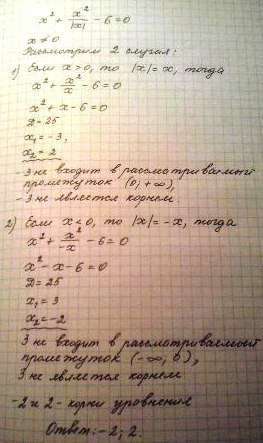 x² + x²/|x| - 6 = 0
x ≠ 0
Рассмотрим 2 случая:
1) Если x > 0, то |x| = x, тогда
x² + x²/x - 6 = 0
x² + x - 6 = 0
D = 25
x₁ = -3,
x₂ = 2
-3 не входит в рассматриваемый
промежуток (0; +∞),
-3 не является корнем
2) Если x < 0, то |x| = -x, тогда
x² + x²/-x - 6 = 0
x² - x - 6 = 0
D = 25
x₁ = 3
x₂ = -2
3 не входит в рассматриваемый
промежуток (-∞, 0),
3 не является корнем
-2 и 2 - корни уравнения
Ответ: -2; 2.